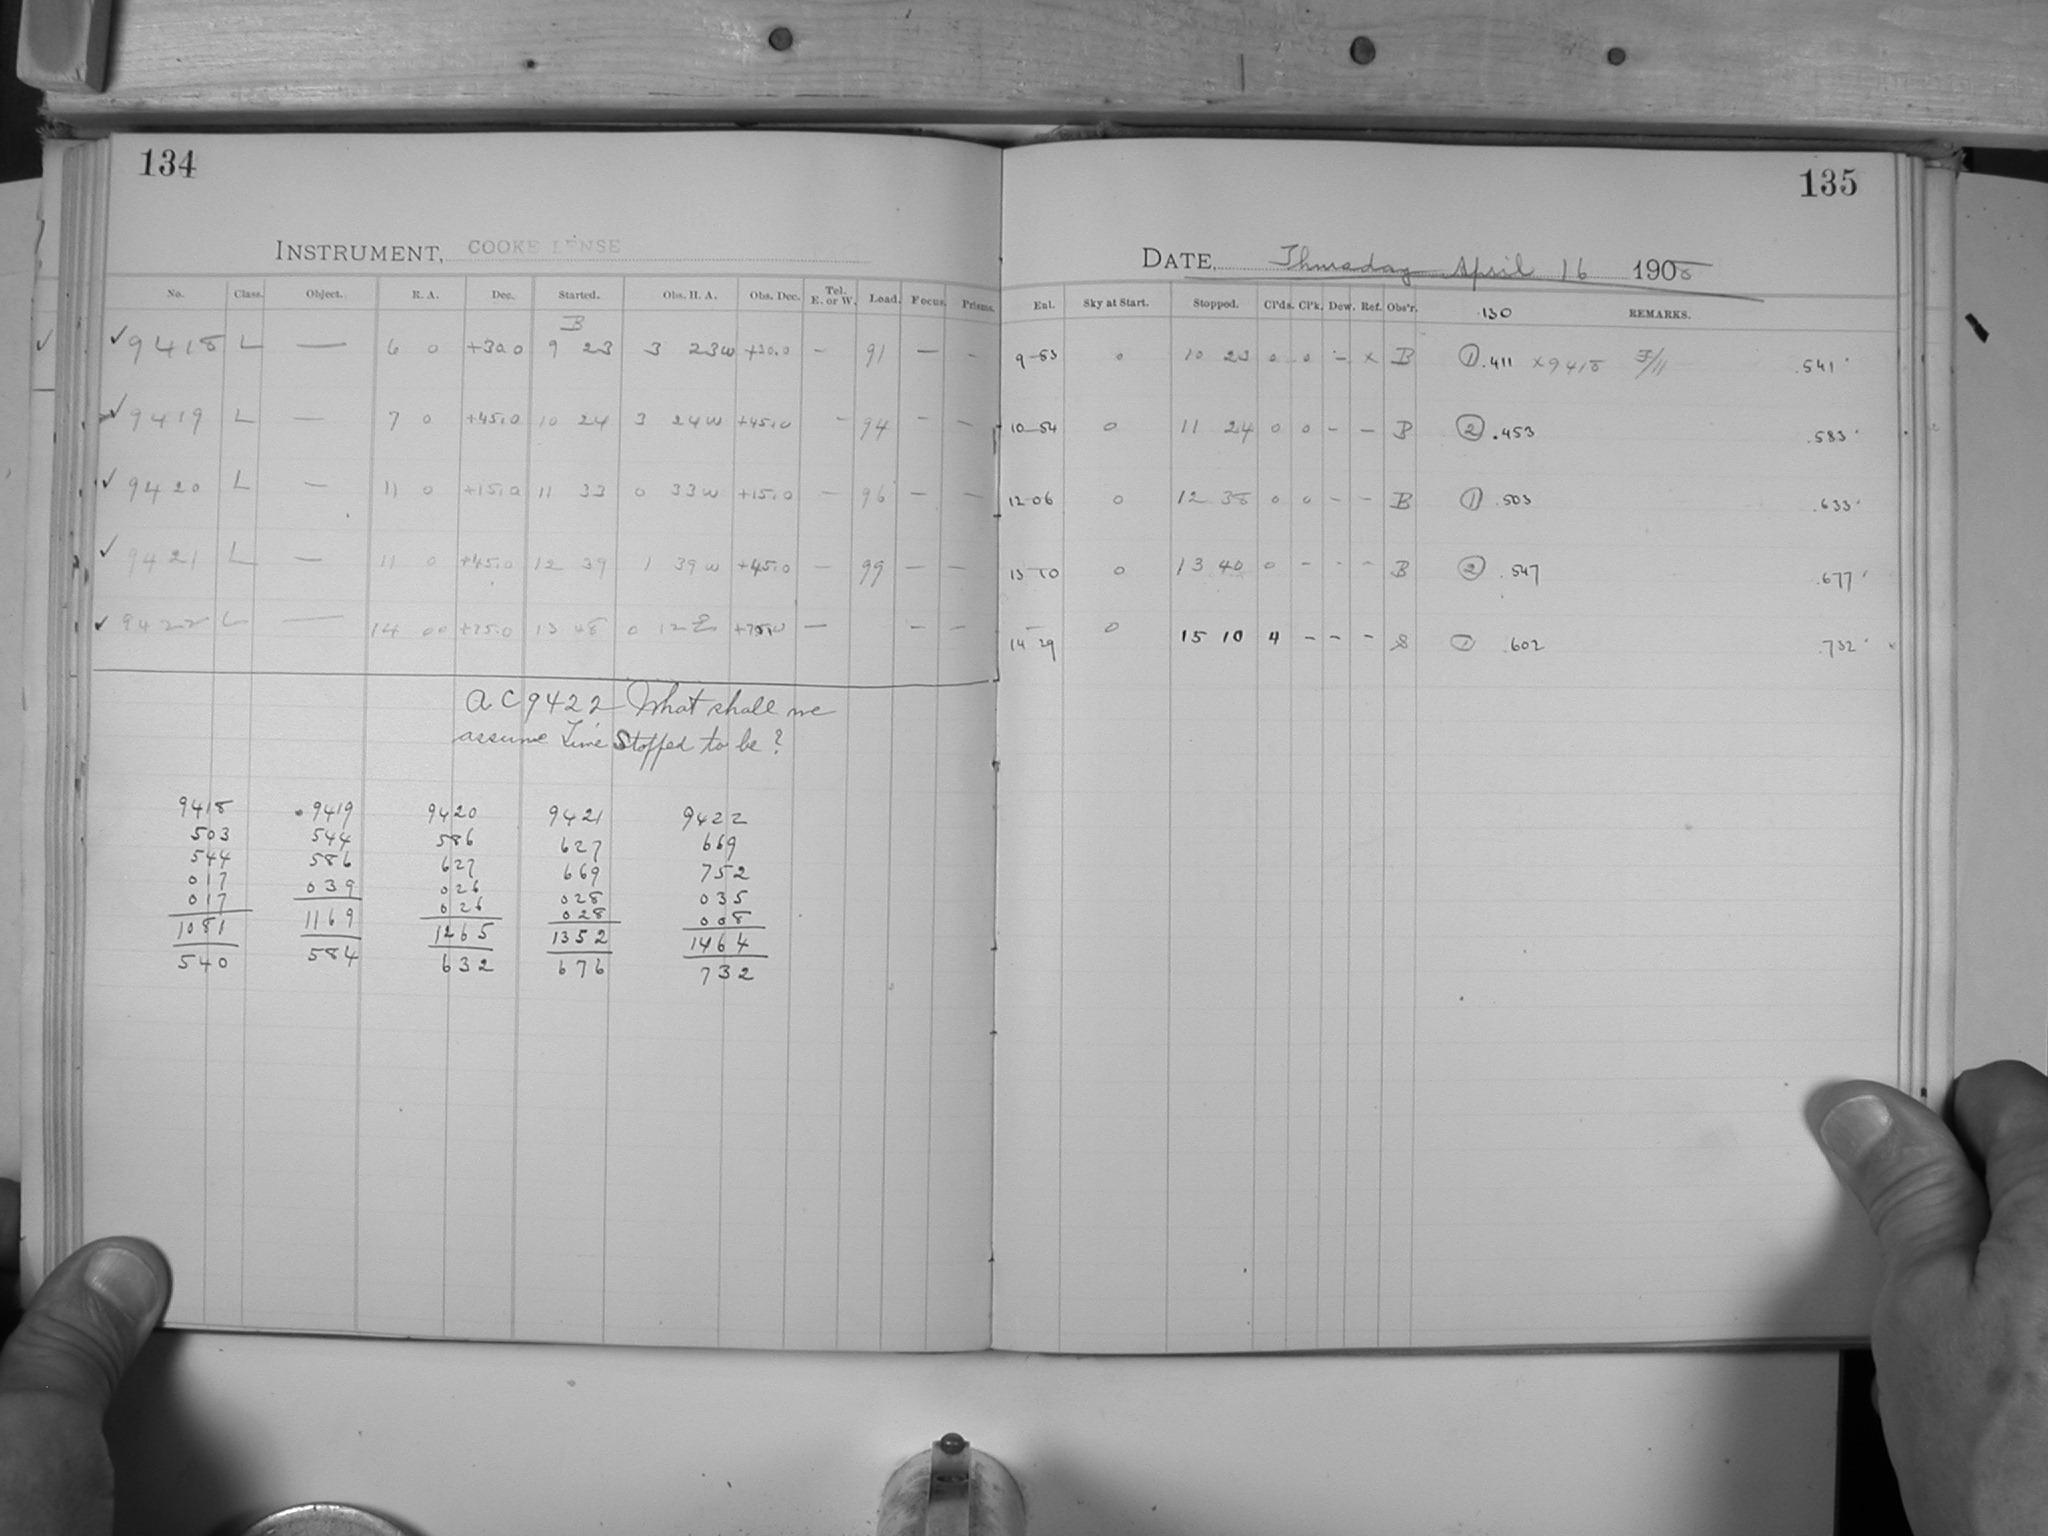 134
INSTRUMENT, COOKE LENSE
No. Class. Object. R. A. Dec. Started. Obs. H. A. Obs. Dec. Tel. E. or W. Load. Focus. Prisms.
B
✓ 9418 L — 6 0 +30.0 9 23 3 23w +30.0 — 91 — —
✓ 9419 L — 7 0 +45.0 10 24 3 24w +45.0 — 94 — —
✓ 9420 L — 11 0 +15.0 11 33 0 33w +15.0 — 96 — —
✓ 9421 L — 11 0 +45.0 12 39 1 39w +45.0 — 99 — —
✓ 9422 L — 14 00 +75.0 13 48 0 12E +75.0 — — —
AC9422 What shall we
assume Time Stopped to be?
9418 9419 9420 9421 9422
503 544 586 627 669
544 586 627 669 752
017 039 026 028 035
017 026 028 008
1081 1169 1265 1352 1464
540 584 632 676 732
135
DATE, Thursday April 16 1908
Enl. Sky at Start. Stopped. Cl'ds. Cl'k. Dew. Ref. Obs'r. .130 REMARKS.
9-53 0 10 23 0 0 — x B ① .411 x9418 F/11 .541
10-54 0 11 24 0 0 - - B ② .453 .583
12-06 0 12 38 0 0 - - B ① .503 .633
13-10 0 13 40 0 - - - B ② .547 .677
14 29 0 15 10 4 - - - S ① .602 .732